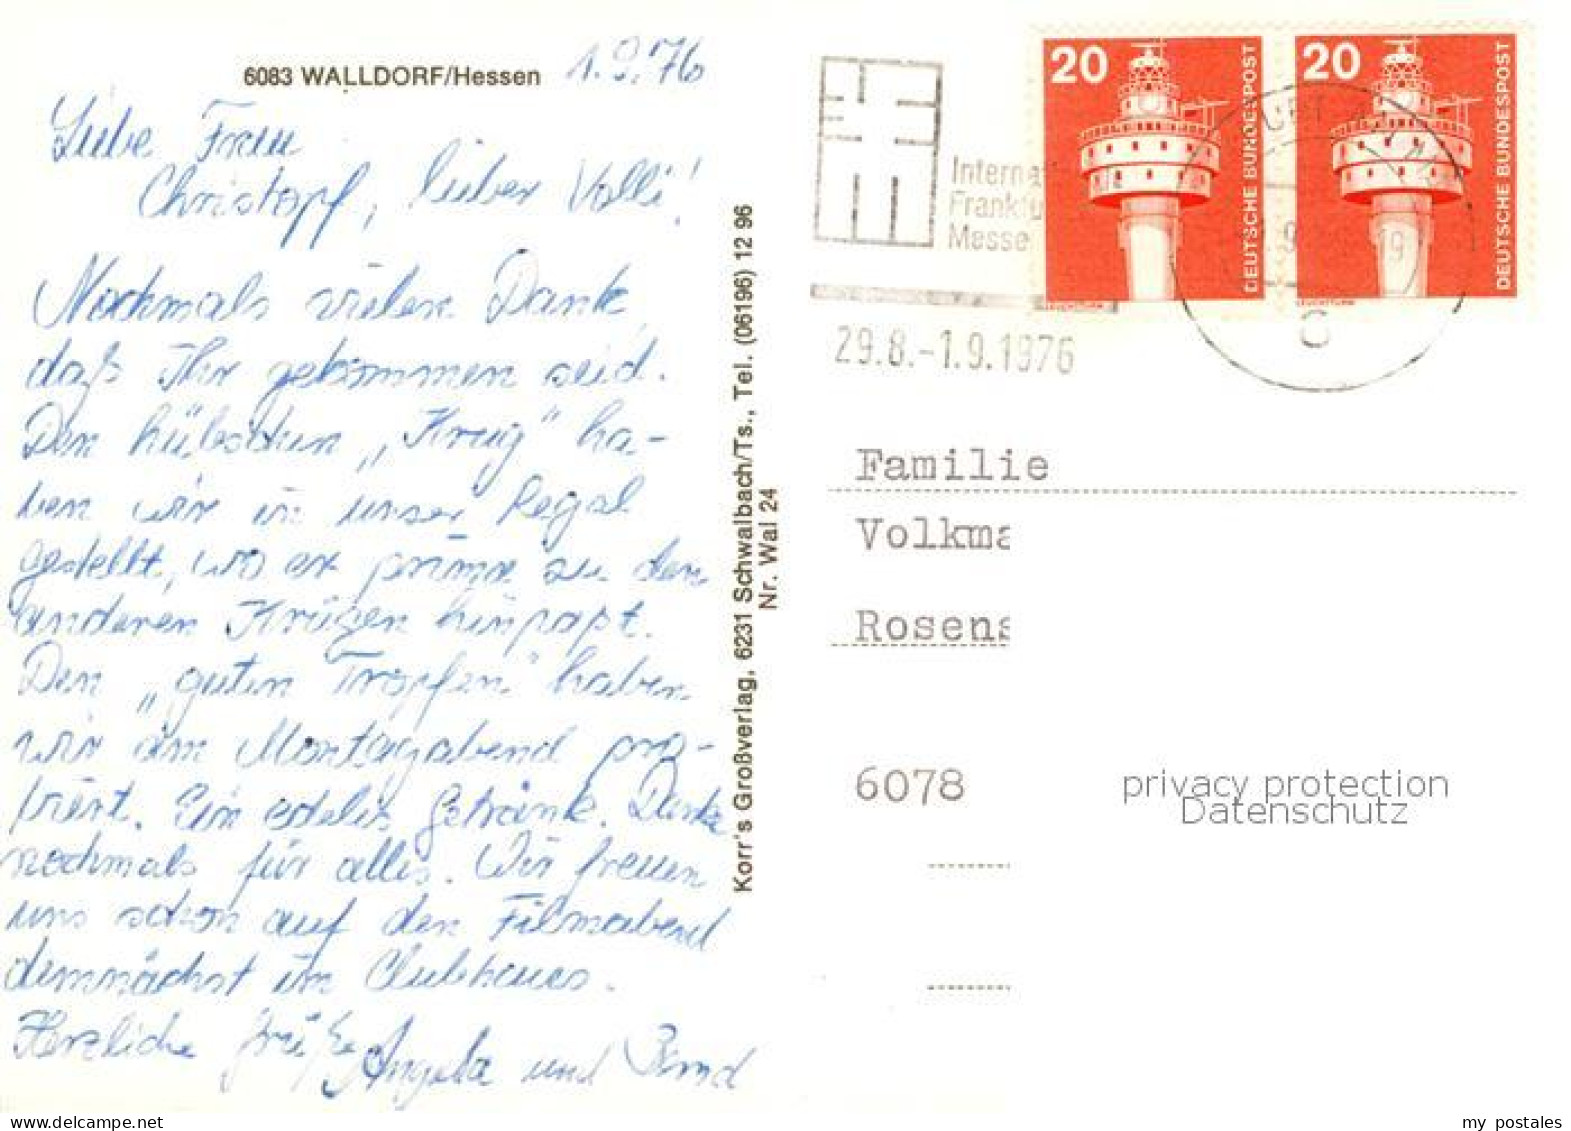 6083 WALLDORF/Hessen 1.9.76
Liebe Frau
Christopf, lieber Volli!
Nochmals vielen Dank,
daß Ihr gekommen seid.
Den hübschen „Krug" ha-
ben wir in unser Regal
gestellt, wo er prima zu den
anderen Krügen hinpaßt.
Den „guten Tropfen" haben
wir am Montagabend pro-
biert. Ein edeles Getränk. Danke
nochmals für alles. Wir freuen
uns schon auf den Filmabend
demnächst im Clubhaus.
Herzliche Grüße
Angela und Bernd
Korr's Großverlag, 6231 Schwalbach/Ts., Tel. (06196) 12 96
Nr. Wal 24
Interna
Frankfu
Messe
29.8.-1.9.1976
20
DEUTSCHE BUNDESPOST
LEUCHTTURM
20
DEUTSCHE BUNDESPOST
LEUCHTTURM
Familie
Volkma
Rosens
6078
privacy protection
Datenschutz
my postales